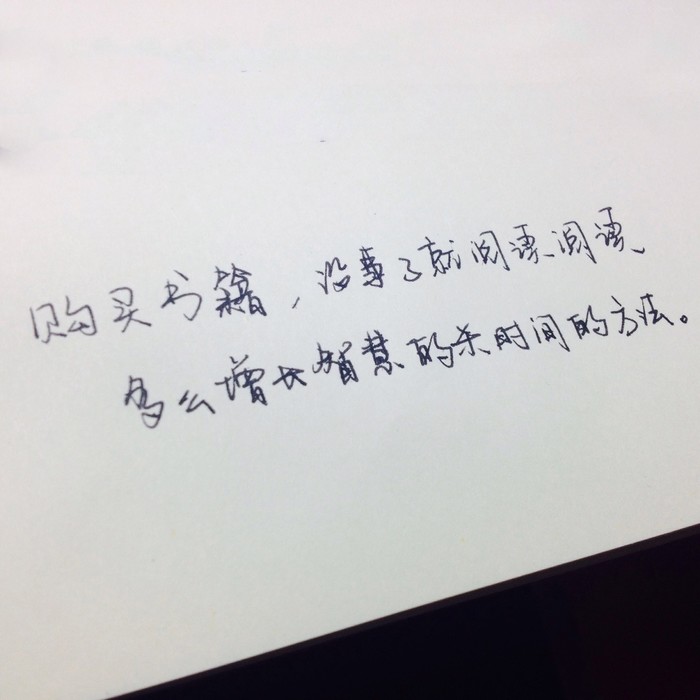 购买书籍，没事了就阅读阅读、
多么增长智慧的杀时间的方法。